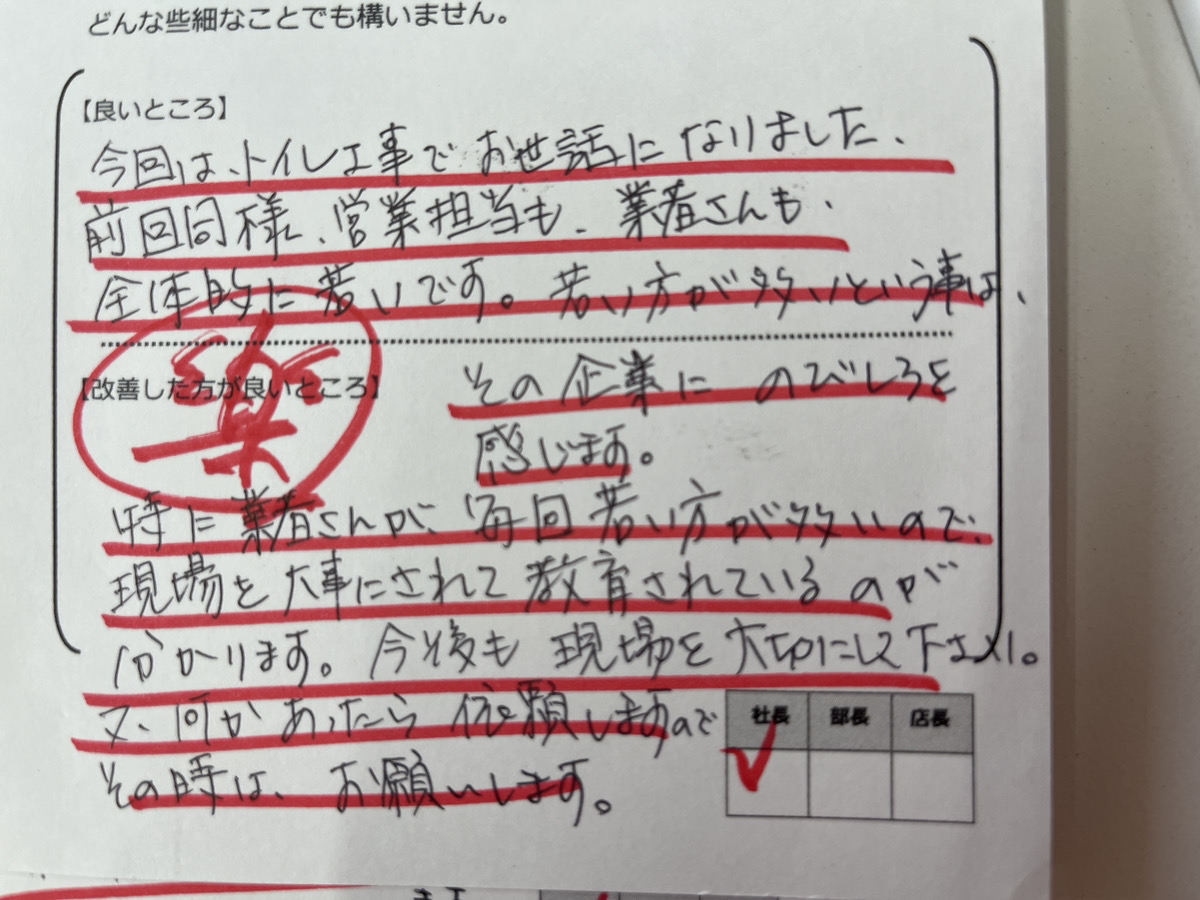 どんな些細なことでも構いません。
【良いところ】
今回は、トイレ工事でお世話になりました、
前回同様、営業担当も、業者さんも、
全体的に若いです。若い方が多いという事は、
【改善した方が良いところ】
楽
その企業に のびしろを
感じます。
特に業者さんが、毎回若い方が多いので、
現場を大事にされて教育されているのが
分かります。今後も現場を大切にして下さい。
又、何かあったら依頼しますので
その時は、お願いします。
社長 部長 店長